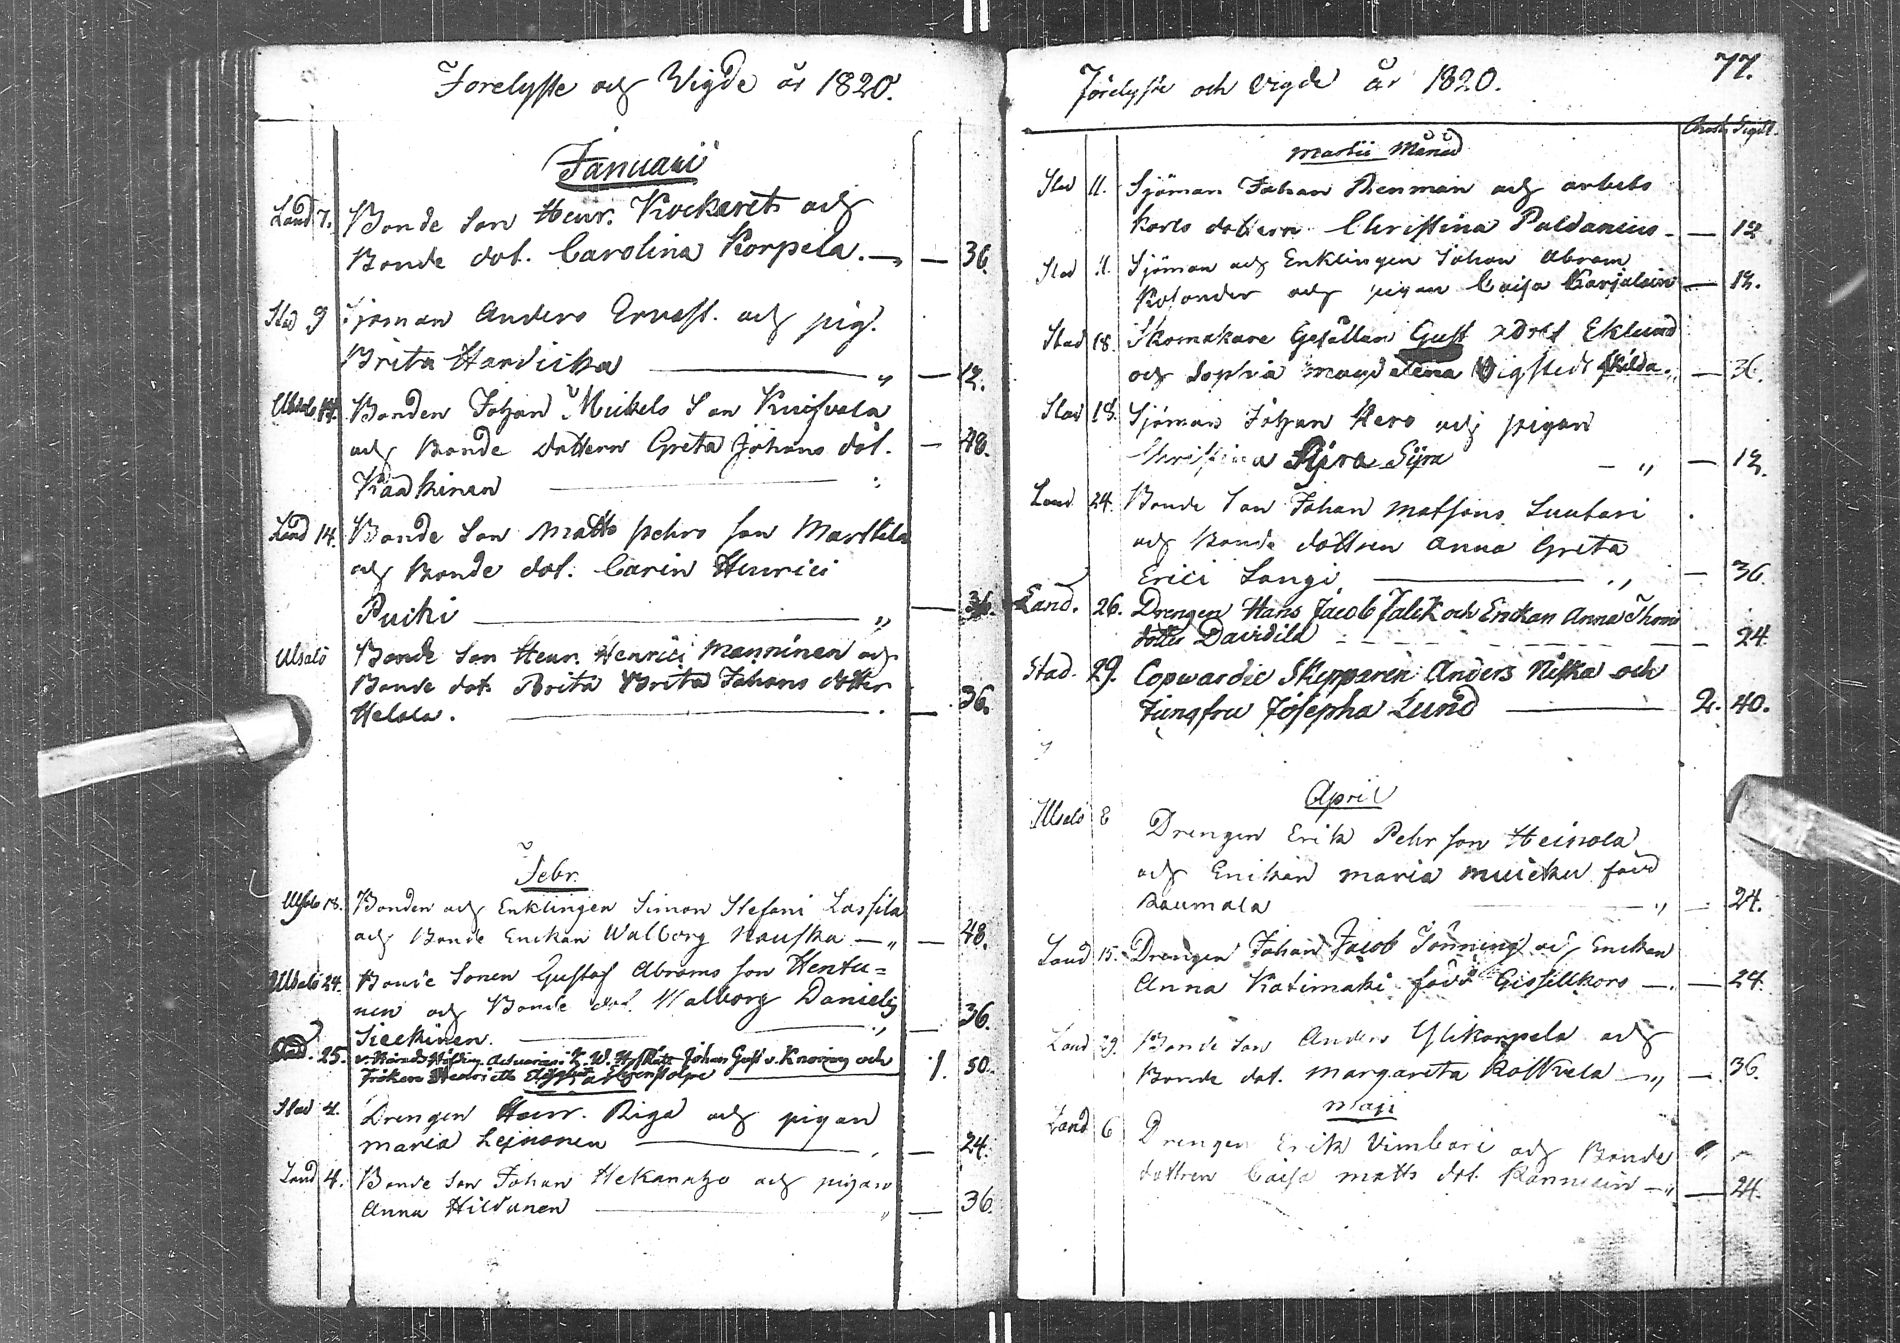 Förelyste och Vigde år 1820.
Januarii
Land 7. Bonde Son Henr. Kockareth och
Bonde dot. Carolina Korpela. — 36.
Stad 9 Sjöman Anders Ervast. och pig.
Brita Hardicka — 12.
14. Bonden Johan Mickels Son
och Bonde dottern Greta Johans dot. — 48.
Kaakinen
Land 14. Bonde Son Matts Pehrs son Marttila
och Bonde dot. Carin Henrici
Pucki — 36.
Bonde Son Henr. Henrici Manninen och
Bonde dot. Brita Brita Johans dotter — 36.
Helala.
Febr.
18. Bonden och Enklingen Simon Stefani Lassila
och Bonde Enckan Walborg — 48.
24. Bonde Sonen Gustaf Abrams son Hentu=
nen och Bonde dot. Walborg Daniels — 36.
Sieckinen.
25. Johan Gust. v. Knorring och 1. 50.
Fröken Hedrietta Ehrenstolpe
Stad 4. Drengen Henr. Riga och pigan
Maria Leinonen — 24.
Land 4. Bonde Son Johan och pigan
Anna Hildunen — 36.
Förelyste och Vigde år 1820.
77.
Martii Månad
Stad 11. Sjöman Johan Renman och arbets
karls dottern Christina Paldanius — 12.
Stad 11. Sjöman och Enklingen Johan Abram
Kosander och pigan Caisa Karjalain — 12.
Stad 18. Skomakare Gesällen Gust Adolf Eklund
och Sophia Magdalena Wigstedt skilda — 36.
Stad 18. Sjöman Johan Hero och pigan
Christina Sijra — 12.
Land 24. Bonde Son Johan Matsons Luutari
och Bonde dottren Anna Greta
Erici Sangi — 36.
Land. 26. Drengen Hans Jacob Falck och Enckan Anna Thoms
dotter Davidila — 24.
Stad. 29. Copvardie Skepparen Anders Niska och
Jungfru Josepha Lund — 2. 40.
April
8 Drengen Erik Pehr son Heinola
och Enckan Maria Muicku född
Raumala — 24.
Land 15. Drengen Johan Jacob Jönning och Enckan
Anna Katimaki född Gissellkors — 24.
Land 29. Bonde Son Anders Ylikorpela och
Bonde dot. Margareta — 36.
Maji
Land 6 Drengen Erik Vimbari och Bonde
dottren Caisa Matts dot. — 24.